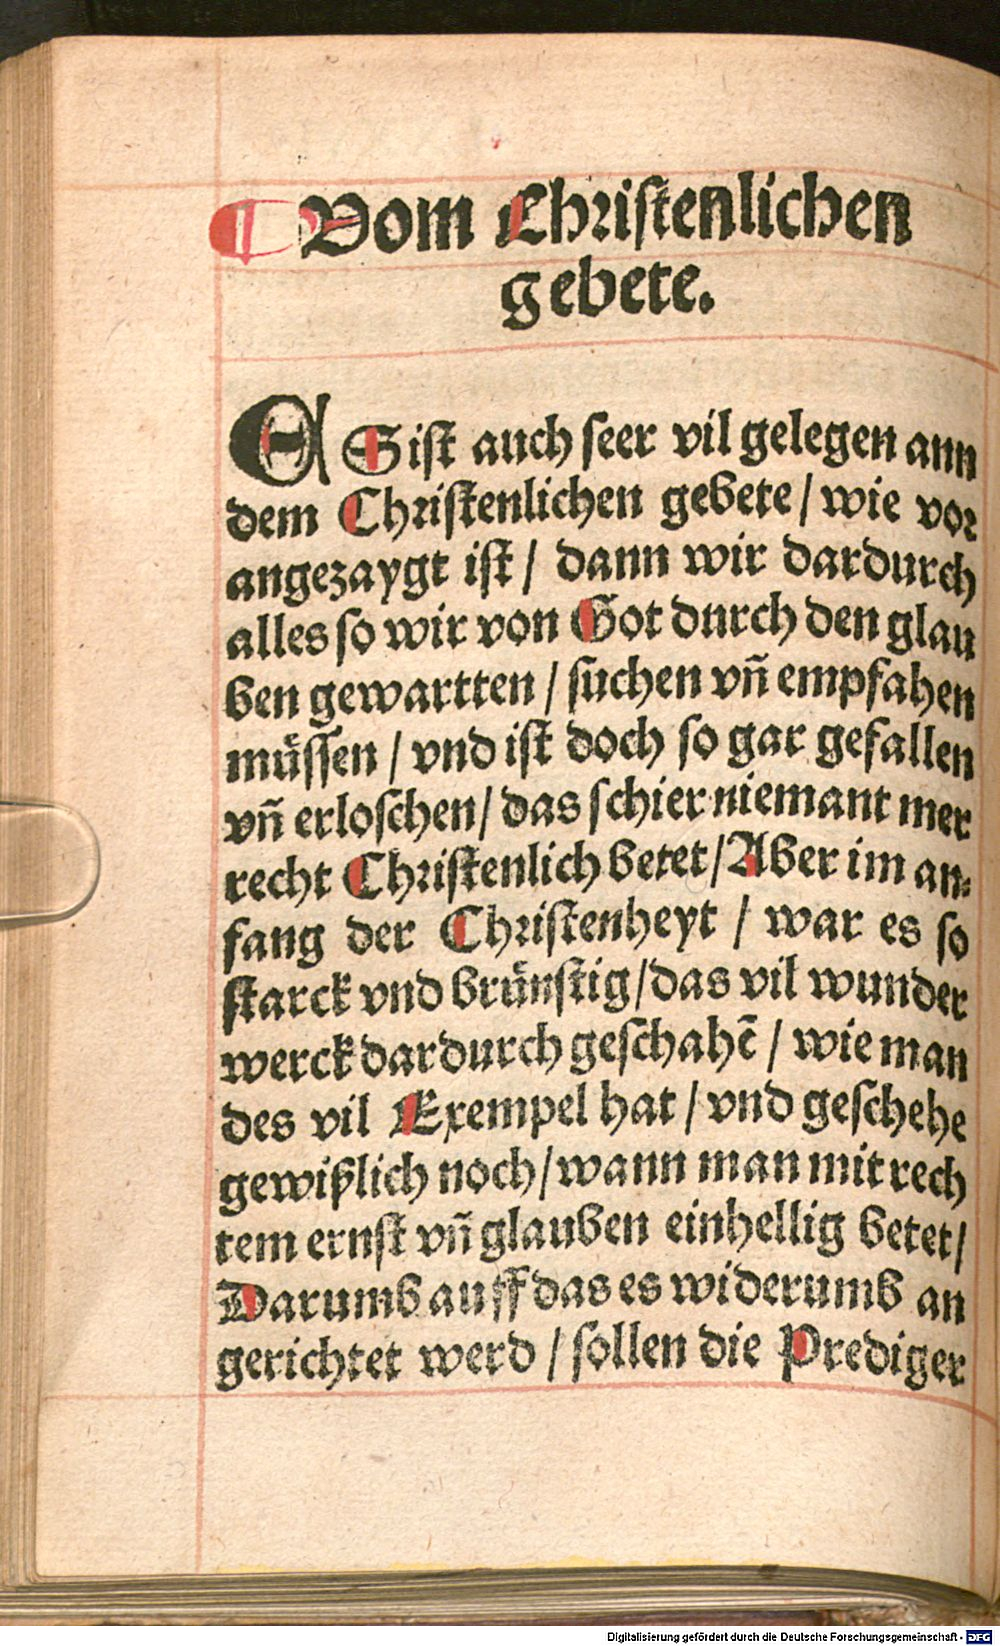 ¶ Vom Christenlichen
gebete.
ES ist auch seer vil gelegen ann
dem Christenlichen gebete / wie vor
angezaygt ist / dann wir dardurch
alles so wir von Got durch den glau
ben gewartten / suchen vñ empfahen
müssen / vnd ist doch so gar gefallen
vñ erloschen / das schier niemant mer
recht Christenlich betet / Aber im an⸗
fang der Christenheyt / war es so
starck vnd brünstig / das vil wunder
werck dardurch geschahē / wie man
des vil Exempel hat / vnd geschehe
gewißlich noch / wann man mit rech
tem ernst vñ glauben einhellig betet /
Darumb auff das es widerumb an
gerichtet werd / sollen die Prediger
Digitalisierung gefördert durch die Deutsche Forschungsgemeinschaft - DFG